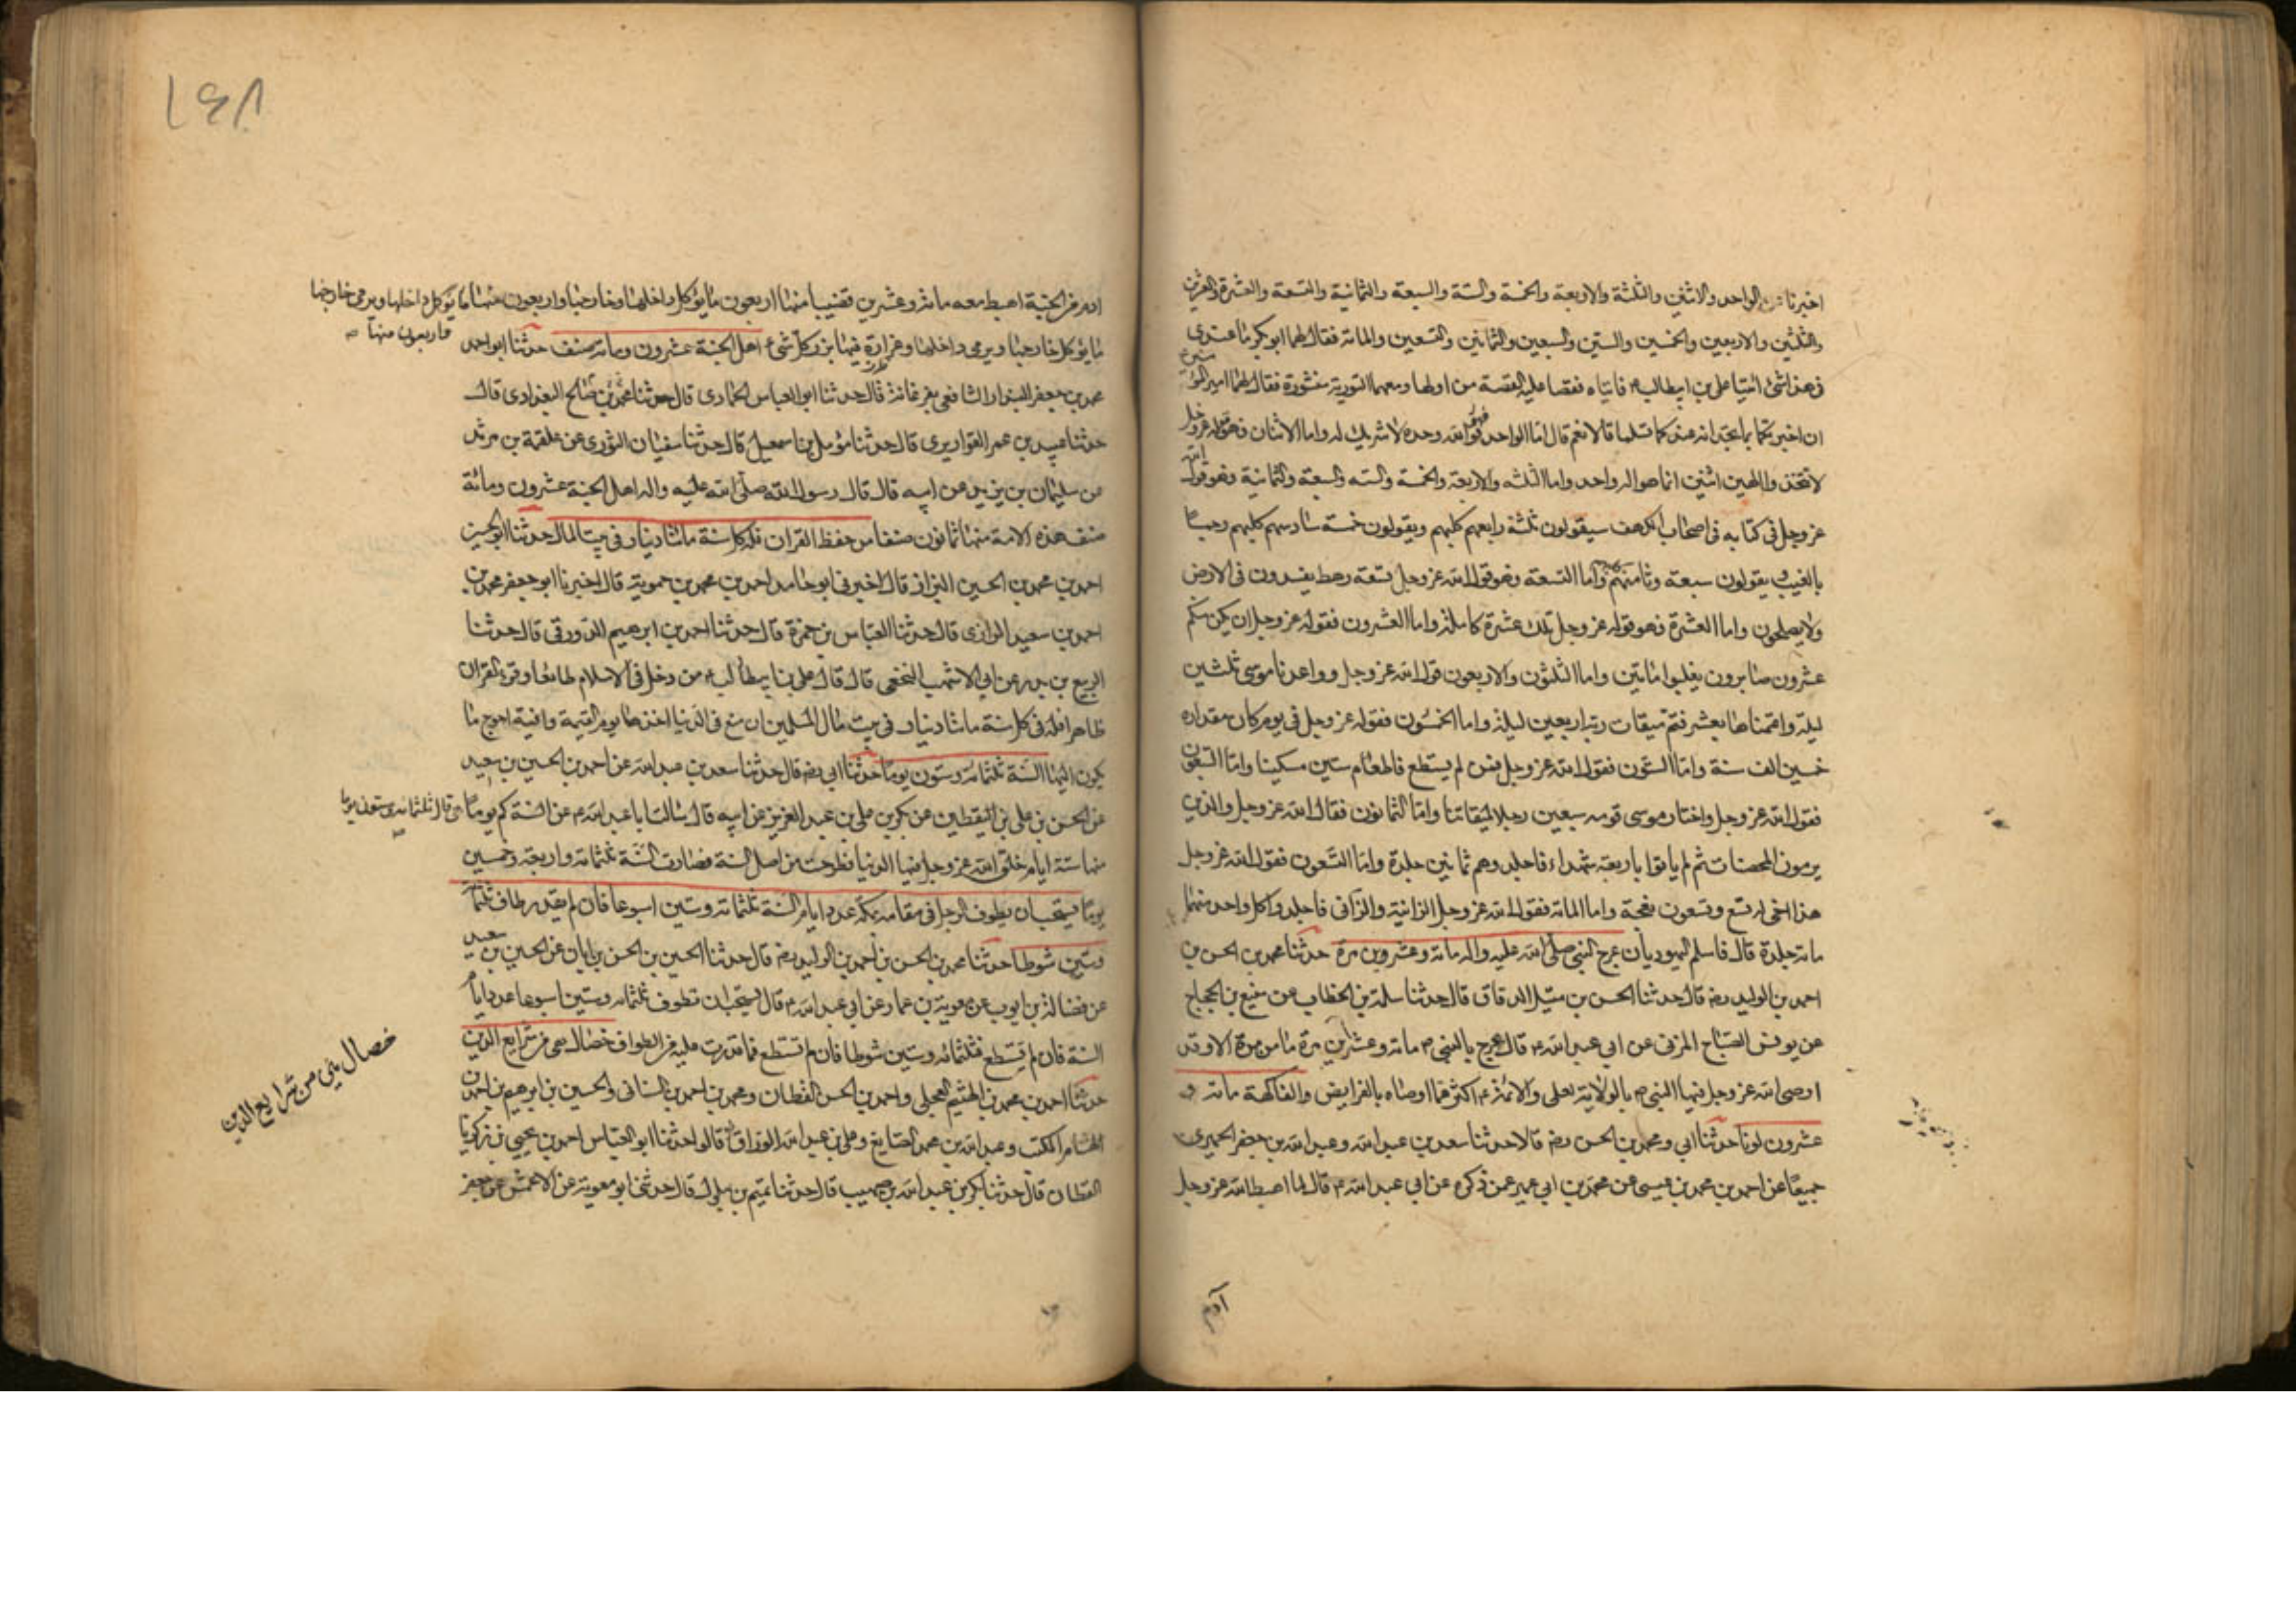 اخبرنا عن الواحد والاثنين والثلثة والاربعة والخمسة والستة والسبعة والثمانية والتسعة والعشرة والعشرين
والثلثين والاربعين والخمسين والستين والسبعين والثمانين والتسعين والمائة فقال لهما ابو بكر ما عندى
فى هذا شئ ائتيا على بن ابيطالب ع فاتياه فقصا عليه القصة من اولها ومعهما التورية منشورة فقال لهما امير المؤمنين ع
ان اخبرتكما بما تجدانه عندكما تسلما قالا نعم قال اما الواحد فهو الله وحده لا شريك له واما الاثنان فهو قوله عز وجل
لا تتخذوا الهين اثنين انما هو اله واحد واما الثلثه والاربعة والخمسة والسته والسبعة والثمانية فهو قول الله
عز وجل فى كتابه فى اصحاب الكهف سيقولون ثلثة رابعهم كلبهم ويقولون خمسة سادسهم كلبهم رجما
بالغيب ويقولون سبعة وثامنهم كلبهم واما التسعة فهو قول الله عز وجل تسعة رهط يفسدون فى الارض
ولا يصلحون واما العشرة فهو قوله عز وجل تلك عشرة كاملة واما العشرون فقوله عز وجل ان يكن منكم
عشرون صابرون يغلبوا مائتين واما الثلثون والاربعون قول الله عز وجل وواعدنا موسى ثلثين
ليلة واتممناها بعشر فتم ميقات ربه اربعين ليلة واما الخمسون فقوله عز وجل فى يوم كان مقداره
خمسين الف سنة واما الستون فقول الله عز وجل فمن لم يستطع فاطعام ستين مسكينا واما السبعون
فقول الله عز وجل واختار موسى قومه سبعين رجلا لميقاتنا واما الثمانون فقال الله عز وجل والذين
يرمون المحصنات ثم لم ياتوا باربعة شهداء فاجلدوهم ثمانين جلدة واما التسعون فقول الله عز وجل
هذا اخى له تسع وتسعون نعجة واما المائة فقول الله عز وجل الزانية والزانى فاجلدوا كل واحد منهما
مائة جلدة قال فاسلم اليهوديان عرج النبى صلى الله عليه واله مائة وعشرين مرة حدثنا محمد بن الحسن بن
احمد بن الوليد رضه قال حدثنا الحسن بن متيل الدقاق قال حدثنا سلمة بن الخطاب عن منيع بن الحجاج
عن يونس الصباح المزنى عن ابى عبد الله ع قال عرج بالنبى ص مائة وعشرين مرة ما من مرة الا وقد
اوصى الله عز وجل فيها النبى ص بالولاية لعلى والائمة ع اكثر مما اوصاه بالفرايض والفاكهة مائة و
عشرون لونا حدثنا ابى ومحمد بن الحسن رضه قالا حدثنا سعد بن عبد الله وعبد الله بن جعفر الحميرى
جميعا عن احمد بن محمد بن عيسى عن محمد بن ابى عمير عمن ذكره عن ابى عبد الله ع قال لما اهبط الله عز وجل
آدم
ادم من الجنة اهبط معه مائة وعشرين قضيبا منها اربعون ما يؤكل داخلها وخارجها واربعون منها ما يؤكل داخلها ويرمى خارجها
واربعون منها
ما يؤكل خارجها ويرمى داخلها وغرارة فيها بزر كل شئ اهل الجنة عشرون ومائة صنف حدثنا ابو احمد
محمد بن جعفر البندار الشافعى بفرغانة قال حدثنا ابو العباس الحمادى قال حدثنا محمد بن صالح البغدادى قال
حدثنا عبيد بن عمر القواريرى قال حدثنا مؤمل بن اسمعيل قال حدثنا سفيان الثورى عن علقمة بن مرثد
عن سليمان بن بريد عن ابيه قال قال رسول الله صلى الله عليه واله اهل الجنة عشرون ومائة
صنف هذه الامة منها ثمانون صنفا من حفظ القران فله كل سنة مائتا دينار فى بيت المال حدثنا ابو الحسين
احمد بن محمد بن الحسين البزاز قال اخبرنى ابو حامد احمد بن محمد بن حموية قال اخبرنا ابو جعفر محمد بن
احمد بن سعيد الرازى قال حدثنا العباس بن حمزة قال حدثنا احمد بن ابرهيم الدورقى قال حدثنا
الربيع بن بدر عن ابى الاشهب النخعى قال قال على بن ابيطالب ع من دخل فى الاسلام طائعا وقرء القران
ظاهرا فله فى كل سنة مائتا دينار فى بيت مال المسلمين ان منع فى الدنيا اخذها يوم القيمة وافية احوج ما
يكون اليها السنة ثلثمائة وستون يوما حدثنا ابى رضه قال حدثنا سعد بن عبد الله عن احمد بن الحسين بن سعيد
عن الحسن بن على بن اليقطين عن بكر بن على بن عبد العزيز عن ابيه قال سالت ابا عبد الله ع عن السنة كم يوما هى قال ثلثمائة وستون يوما
منها ستة ايام خلق الله عز وجل فيها الدنيا فطرحت من اصل السنة فصارت السنة ثلثمائة واربعة وخمسين
يوما يستحب ان يطوف الرجل فى مقامه بمكة عدد ايام السنة ثلثمائة وستين اسبوعا فان لم يقدر طاف ثلثمائة
وستين شوطا حدثنا محمد بن الحسن بن احمد بن الوليد رضه قال حدثنا الحسين بن الحسن بن ابان عن الحسين بن سعيد
عن فضالة بن ايوب عن معوية بن عمار عن ابى عبد الله ع قال يستحب ان تطوف ثلثمائة وستين اسبوعا عدد ايام
السنة فان لم تستطع فثلثمائة وستين شوطا فان لم تستطع فما قدرت عليه من الطواف خصال هى من شرايع الدين
حدثنا احمد بن محمد بن الهيثم العجلى واحمد بن الحسن القطان ومحمد بن احمد بن السنانى والحسين بن ابرهيم بن احمد بن
هشام المكتب وعبد الله بن محمد الصايغ وعلى بن عبد الله الوراق قالوا حدثنا ابو العباس احمد بن يحيى بن زكريا
القطان قال حدثنا بكر بن عبد الله بن حبيب قال حدثنا تميم بن بهلول قال حدثنى ابو معوية عن الاعمش عن جعفر
خصال هى من شرايع الدين